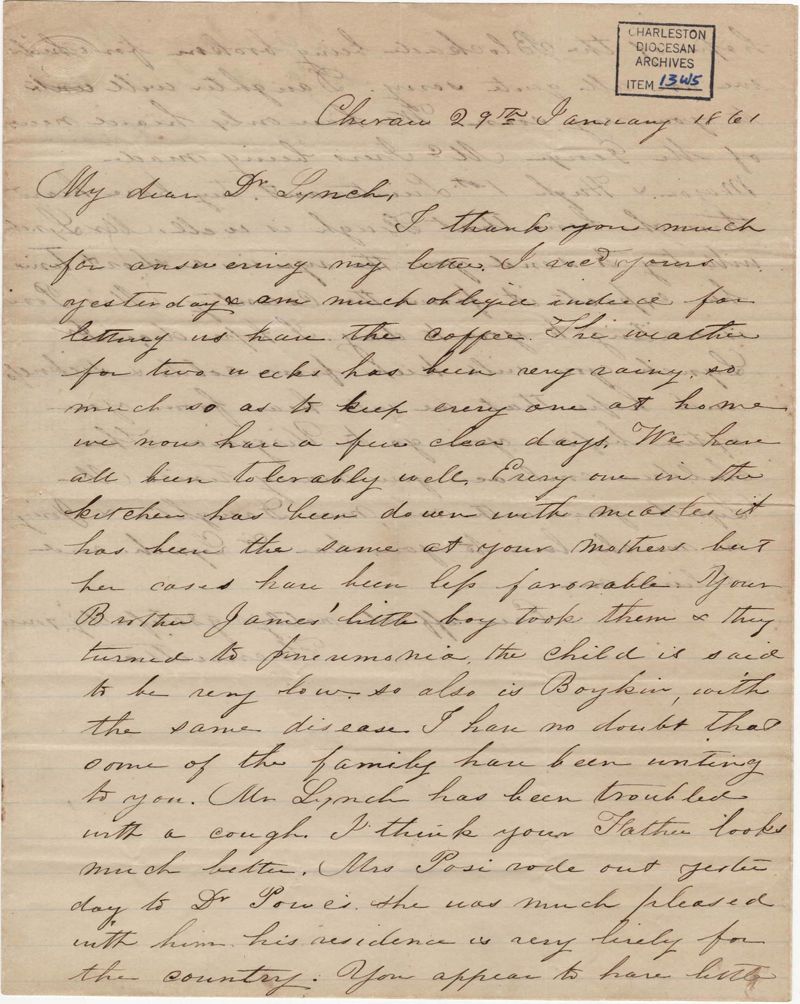 CHARLESTON
DIOCESAN
ARCHIVES
ITEM 13W5
Cheraw 29th January 1861
My dear Dr Lynch,
I thank you much
for answering my letter. I recd yours
yesterday & am much obliged indeed for
letting us have the coffee. The weather
for two weeks has been very rainy, so
much so as to keep every one at home
we now have a few clear days. We have
all been tolerably well. Every one in the
kitchen has been down with measles it
has been the same at your Mothers but
her cases have been less favorable. Your
Brother James' little boy took them & they
turned to pneumonia, the child is said
to be very low. so also is Boykin, with
the same disease. I have no doubt that
some of the family have been writing
to you. Mr Lynch has been troubled
with a cough. I think your Father looks
much better. Mrs Posi rode out yester
day to Dr Powes. she was much pleased
with him his residence is very lively for
the country. You appear to have little